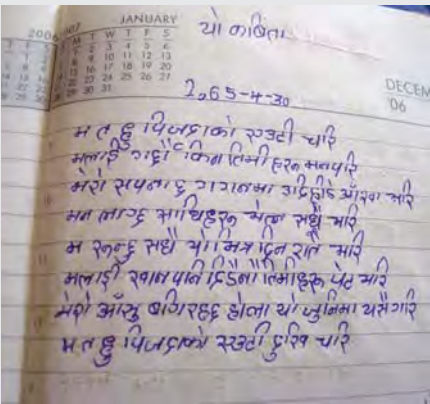 JANUARY
2006-107
M T W T F S
1 2 3 4 5 6
8 9 10 11 12 13
15 16 17 18 19 20
22 23 24 25 26 27
29 30 31
यो कबिता
DECEM
'06
2065-4-30
म त हु पिंजडाको एउटी चरि
मलाई गर्छौ किन तिमीहरु मनपरि
मेरो सपना छ गगनमा उडि हिडे आँखा भरि
मन लाग्छ साथिहरु भेट्न सधै भरि
म रुन्छु सधै यो भित्र दिन रातै भरि
मलाई खान पनि दिँदैनौ तिमीहरु पेट भरि
मेरो आँसु बगिरहछ होला यो जुनिमा यसै गरि
म त हु पिंजडाको एउटी दुखि चरि